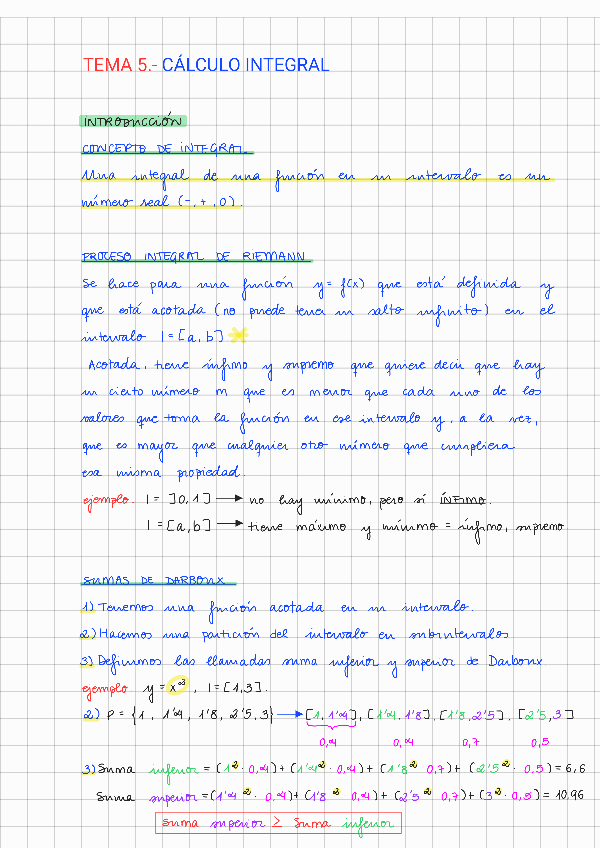 TEMA 5.- CÁLCULO INTEGRAL
INTRODUCCIÓN
CONCEPTO DE INTEGRAL
Una integral de una función en un intervalo es un
número real (-,+,0).
PROCESO INTEGRAL DE RIEMANN
Se hace para una función y = f(x) que está definida y
que está acotada (no puede tener un salto infinito) en el
intervalo I = [a, b]
Acotada, tiene ínfimo y supremo que quiere decir que hay
un cierto número m que es menor que cada uno de los
valores que toma la función en ese intervalo y, a la vez,
que es mayor que cualquier otro número que cumpliera
esa misma propiedad.
ejemplo. I = ]0, 1] → no hay mínimo, pero sí ÍNFIMO.
I = [a, b] → tiene máximo y mínimo = ínfimo, supremo
SUMAS DE DARBOUX
1) Tenemos una función acotada en un intervalo.
2) Hacemos una partición del intervalo en subintervalos
3) Definimos las llamadas suma inferior y superior de Darboux
ejemplo y = x², I = [1, 3].
2) P = {1, 1'4, 1'8, 2'5, 3} → [1, 1'4], [1'4, 1'8], [1'8, 2'5], [2'5, 3]
0,4 0,4 0,7 0,5
3) Suma inferior = (1² · 0,4) + (1'4² · 0,4) + (1'8² · 0,7) + (2'5² · 0,5) = 6,6
Suma superior = (1'4² · 0,4) + (1'8² · 0,4) + (2'5² · 0,7) + (3² · 0,5) = 10,96
Suma superior ≥ Suma inferior